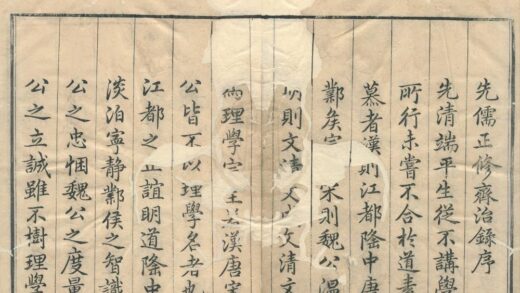 先儒正修齊治錄序
先清端平生從不講學
所行未嘗不合於道素
慕者漢則江都隆中唐
鄴矦宋則魏公溫
則文清文成文清文
理學宗主若漢唐宋
公皆不以理學名者也
江都之正誼明道隆中
淡泊寧靜鄴侯之智識
公之忠悃魏公之度量
公之立誠雖不樹理學